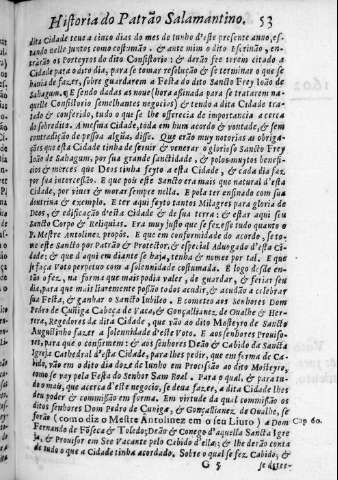 Historia do Patrão Salamantino. 53
dita Cidade teve a cinco dias do mes de Iunho d'este presente anno, es-
tando nelle juntos como costumão, & ante mim o dito Escrivão, en-
trárão os Porteyros do dito Consistorio: & derão fee terem citado a
Cidade para o dito dia, para se tomar resolução & se terminar o que se
havia de fazer, sobre guardarem a Festa do dito Sancto Frey Ioão de
Sahagum. E sendo dadas as nove (hora assinada para se tratarem na-
quelle Consistorio semelhantes negocios) & tendo a dita Cidade tra-
tado & conferido, tudo o que se lhe offerecia de importancia a cerca
do sobredito. A mesma Cidade, toda em hum acordo & vontade, & sem
contradição de pessoa algũa, disse. Que erão muy notorias as obriga-
ções que esta Cidade tinha de servir & venerar o glorioso Sancto Frey
Ioão de Sahagum, por sua grande sanctidade, & polos muytos benefi-
cios & merces que Deos tinha feyto a esta Cidade, & cada dia faz,
por sua intercessão. E que pois este Sancto era mais que natural d'esta
Cidade, por viver & morar sempre nella. E pola ter ensinado com sua
doutrina & exemplo. E ter aqui feyto tantos Milagres para gloria de
Deos, & edificação d'esta Cidade & de sua terra: & estar aqui seu
Sancto Corpo & Reliquias. Era muy justo que se fezesse tudo quanto o
P. Mestre Antolinez propôs. E que em conformidade do acordo, se to-
me este Sancto por Patrão & Protector, & especial Advogado d'esta Ci-
dade: & que d'aqui em diante se haja, tenha & nomee por tal. E que
se faça Voto perpetuo com a solennidade costumada. E logo desde en-
tão o fez, na forma que mais podia valer, de guardar, & feriar seu
dia, para que mais livremente possão todos acudir, & acudão a celebrar
sua Festa, & ganhar o Sancto Iubileo. E cometeo aos Senhores Dom
Pedro de Cuñiga Cabeça de Vaca, & Gonçallianez de Ovalhe & Her-
rera, Regedores da dita Cidade, que vão ao dito Mosteyro de Sancto
Augustinho fazer a solennidade d'este Voto. E aos Senhores Proviso-
res, para que o confirmem: & aos Senhores Deão & Cabido da Sancta
Igreja Cathedral d'esta Cidade, para lhes pedir, que em forma de Ca-
bido, vão em o dito dia doze de Iunho em Procissão ao dito Mosteyro,
como se vay pelo Festa do Senhor Sam Roal. Para o qual, & para tu-
do o mais, que acerca d'este negocio, se deva fazer, a dita Cidade lhes
deu poder & commissão em forma. Em virtude da qual commissão os
ditos senhores Dom Pedro de Cuniga, & Gonçallianez de Ovalhe, se
forão (como diz o Mestre Antolinez em o seu Livro) a Dom Cap. 60.
Fernando de Fõseca & Toledo; Deão & Conego d'aquella Sancta Igre
ja, & Provisor em See Vacante pelo Cabido d'ella: & lhe derão conta
de tudo o que a Cidade tinha acordado. Sobre o qual se fez Cabido, &
G 5